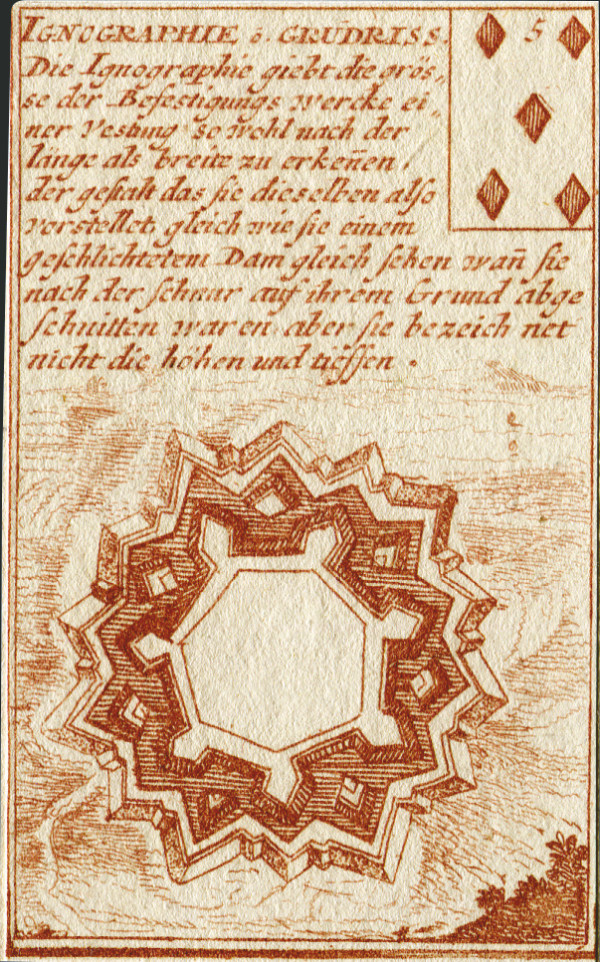 IGNOGRAPHIE ò. GRUD̄RISS.
5
Die Ignographie giebt die grös,,
se der Befestigungs wercke ei,,
ner Vestung so wohl nach der
länge als breite zu erkeñen /
der gestalt das sie dieselben also
vorstellet, gleich wie sie einem
geschlichtetem Dam gleich sehen wañ sie
nach der schnur auf ihrem Grund abge
schnitten waren aber sie bezeich net
nicht die höhen und tieffen .